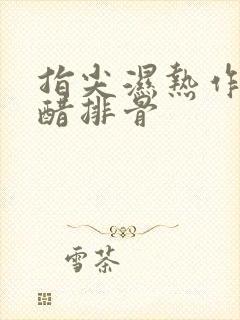 指尖濕熱作
醋排骨
雪茶